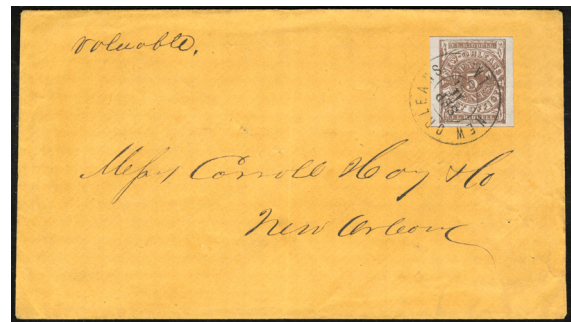 Valuable.
5
NEW ORLEANS
Messrs Carroll Hoy & Co
New Orleans